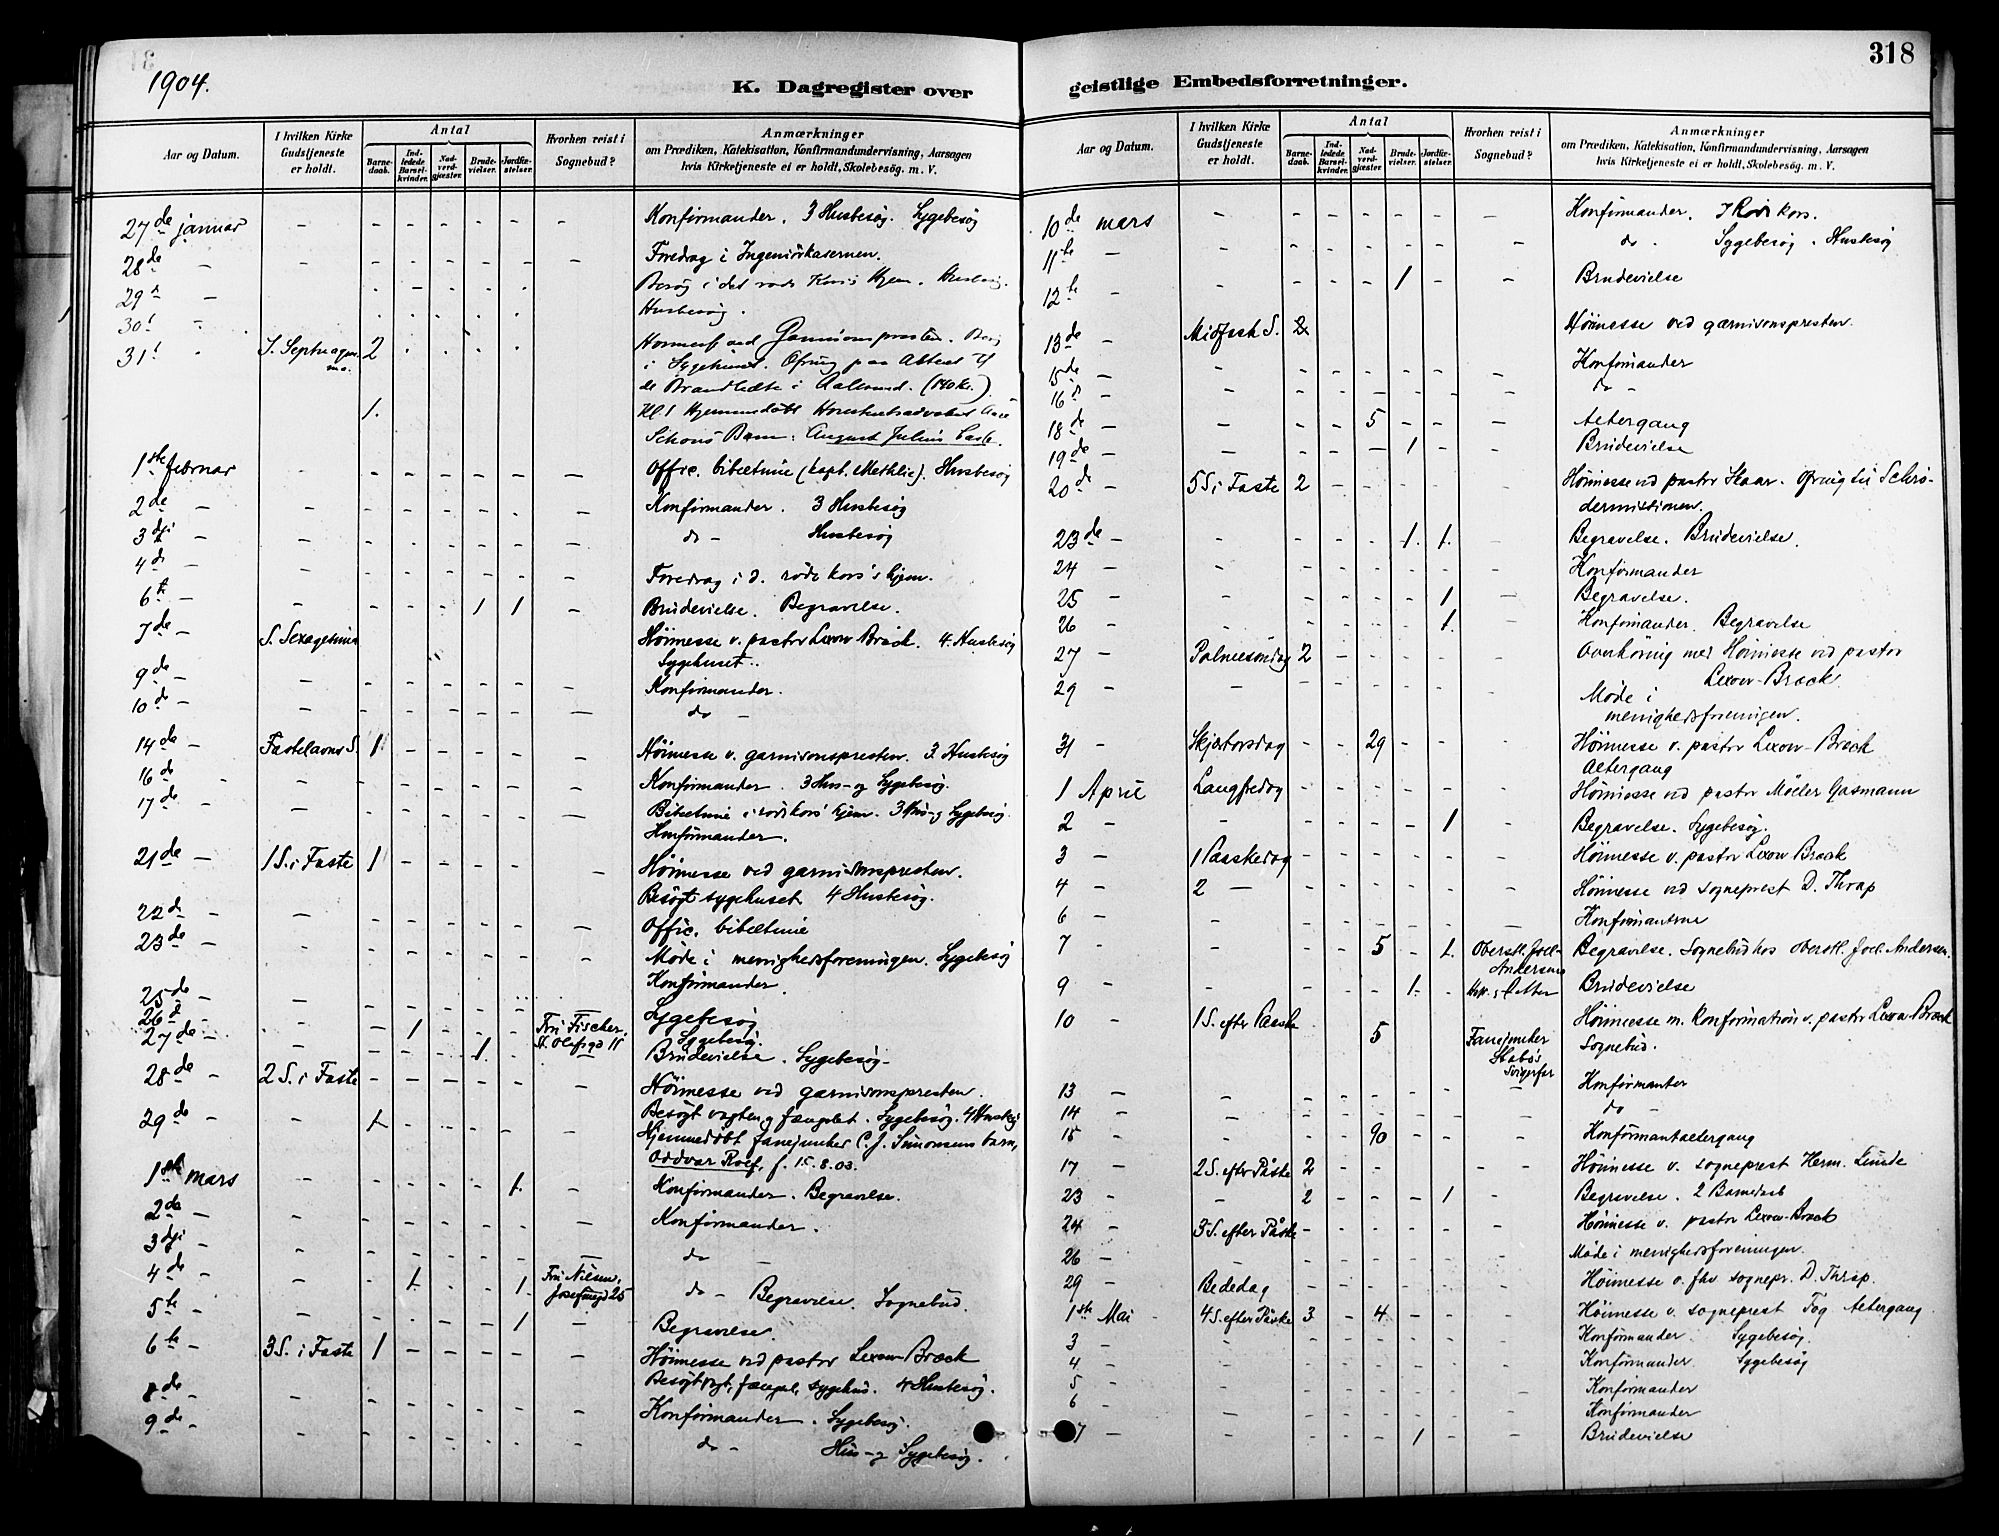 1904.
318
K. Dagregister over geistlige Embedsforretninger.
Aar og Datum.
I hvilken Kirke Gudstjeneste er holdt.
Antal
Barnedaab.
Indledede Barselkvinder.
Nadverdgjæster.
Brudevielser.
Jordfæstelser.
Hvorhen reist i Sognebud?
Anmærkninger
om Prædiken, Katekisation, Konfirmandundervisning, Aarsagen
hvis Kirketjeneste ei er holdt, Skolebesøg. m. V.
27de januar - - - - - - - Konfirmander. 3 Husbesøg. Sygebesøg
28de - Foredrag i Ingeniörkasernen.
29 - Besøg i det røde Kors's Hjem. Husbesøg.
30 Husbesøg.
31 S. Septuagesima. 2 ved Garnisonspresten.
i Sygehuset. Ofring paa Alteret til
de Brandlidte i Aalesund. (140 kr.)
1. Kl. 1 Hjemmedöbt
Barn: August Julius
1ste februar - - - - - - - Offic. bibeltime (kapt. Methlie). Husbesøg
2de - - - - - - - Konfirmander. 3 Husbesøg
3dje - - - - - - - do - Husbesøg
4de - Foredrag i d. röde kors's hjem.
6te - - - - - 1 1 - Brudevielse. Begravelse.
7de - S. Sexagesima Höimesse v. pastor Lexow Bræck. 4 Husbesøg
Sygehuset.
9de - Konfirmander.
10de - do -
14de - Fastelavns S. 1 - - - - Höimesse v. garnisonspresten. 3 Husbesøg
16de - Konfirmander. 3 Hus- og Sygebesøg.
17de - Bibeltime i rödekors' hjem. 3 Hus- og Sygebesøg.
Konfirmander.
21de - 1 S. i Faste 1 - - - - - Höimesse ved garnisonspresten.
Besøgt sygehuset 4 Husbesøg.
22de - Offic. bibeltime
23de - Møde i menighedsforeningen. Sygebesøg
25de - Konfirmander.
26de - 1 Fru Fischer, St. Olafsgd 11 Sygebesøg
27de - 1. Sygebesøg.
Brudevielse. Sygebesøg -
28de - 2 S. i Faste - - - - - - Höimesse ved garnisonspresten.
Besøgt vagten og fængslet. Sygebesøg. 4 Husbesøg
29de - 1 Hjemmedöbt fanejunker C. J. Simonsens barn,
Oddvar Rolf, f. 15.8.03.
1ste mars - - - - - 1. - Konfirmander. Begravelse.
2de - Konfirmander.
3dje - do -
4de - 1. 1. Fru Nilsen, Josefinegd 25 do - Begravelse. Sognebud.
5te - 1 - Begravelse.
6te - 3 S. i Faste 1 - - - - - Höimesse ved pastor Lexow-Bræck
Besøgt vagt, fængsel, sygehus. 4 Husbesøg.
8de - Konfirmander. Sygebesøg.
9de - do - Hus- og Sygebesøg.
Aar og Datum.
I hvilken Kirke Gudstjeneste er holdt.
Antal
Barnedaab.
Indledede Barselkvinder.
Nadverdgjæster.
Brudevielser.
Jordfæstelser.
Hvorhen reist i Sognebud?
Anmærkninger
om Prædiken, Katekisation, Konfirmandundervisning, Aarsagen
hvis Kirketjeneste ei er holdt, Skolebesøg. m. V.
10de mars - - - - - - - Konfirmander. kors.
11te - do. Sygebesøg. Husbesøg
12te - 1 - - Brudevielse
13de - Midfaste S. 2 Höimesse ved garnisonspresten.
15de - Konfirmander
16de - do -
18de - 5 - - - Altergang
19de - 1 - Brudevielse
20de - 5 S. i Faste 2 - - - - Höimesse ved pastor Skaar. Ofring til Schrödermissionen.
23de - 1. 1. - Begravelse. Brudevielse.
24 - Konfirmander
25 - 1 - Begravelse.
26 - 1. - Konfirmander. Begravelse
27 - Palmesöndag 2 - - - - - Overhøring med Höimesse ved pastor
Lexow-Bræck
29 - Møde i
menighedsforeningen.
31 - Skjærtorsdag - - 29 - - - Höimesse v. pastor Lexow-Bræck
Altergang
1 April Langfredag - Höimesse ved pastor Möller Gasmann
2 - 1 - Begravelse. Sygebesøg.
3 - 1 Paaskedag - Höimesse v. pastor Lexow Bræck
4 - 2 - Höimesse ved sogneprest D. Thrap
6 - Konfirmanterne
7 - 5 - 1. Oberstl. Joel- Andersen Begravelse. Sognebud hos oberstl. Joel. Andersen.
9 - 1. - Brudevielse
10 - 1 S. efter Paaske 5 Fanejunker Stabø's Svigerfar Höimesse m. Konfirmation v. pastor Lexow Bræck
Sognebud.
13 - Konfirmanter
14 - do -
15 - 90 - - - Konfirmantaltergang
17 - 2 S. efter Påske 2 - - - - Höimesse v. sogneprest Herm. Lunde
23 - - 2 - - - 1 - Begravelse. 2 Barnedaab
24 - 3 S. efter Påske - Höimesse v. pastor Lexow-Bræck
26 - Møde i menighedsforeningen.
29 - Bededag Höimesse v. fhv sognepr. D. Thrap.
1ste Mai 4 S. efter Påske 3 - 4 - - - Höimesse v. sogneprest Fog Altergang
3 - Konfirmander Sygebesøg.
4 - Konfirmander. Sygebesøg
5 - Konfirmander
6 - Konfirmander
7 - 1 Brudevielse